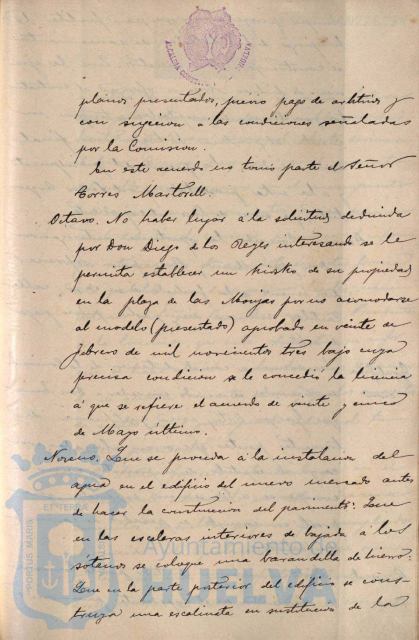 ALCALDIA CONST HUELVA
planos presentados, previo pago de arbitrios y
con sugecion á las condiciones señaladas
por la Comision.
En este acuerdo no tomó parte el Señor
Torres Martorell.
Octavo. No haber lugar á la solicitud deducida
por Don Diego de los Reyes interesando se le
permita establecer un kiosko de su propiedad
en la plaza de las Monjas por no acomodarse
al modelo (presentado) aprobado en veinte de
febrero de mil novecientos tres bajo cuya
precisa condicion se le concedió la licencia
á que se refiere el acuerdo de veinte y cinco
de Mayo último.
Noveno. Que se proceda á la instalacion del
agua en el edificio del nuevo mercado antes
de hacer la construccion del pavimento: Que
en las escaleras interiores de bajada á los
sótanos se coloque una barandilla de hierro:
Que en la parte posterior del edificio se cons-
truya una escalinata en sustitucion de la
PORTUS MARIS ET TER
Ayuntamiento de
HUELVA